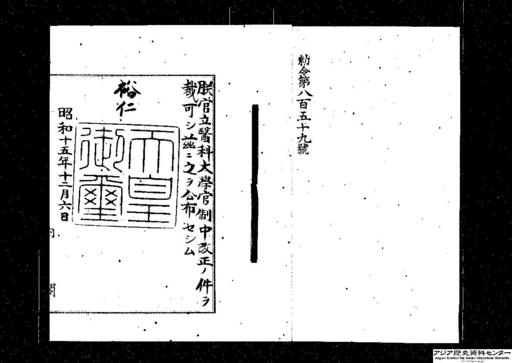 勅令第八百五十九號
朕官立醫科大學官制中改正ノ件ヲ
裁可シ茲ニ之ヲ公布セシム
裕仁
天皇
御璽
昭和十五年十二月六日
アジア歴史資料センター
Japan Center for Asian Historical Records